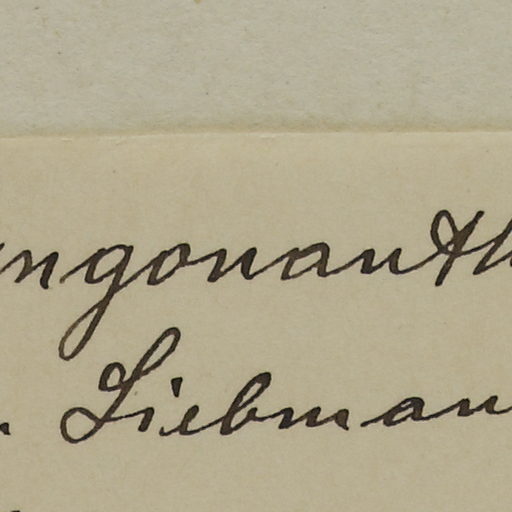 ngonanth
Liebman